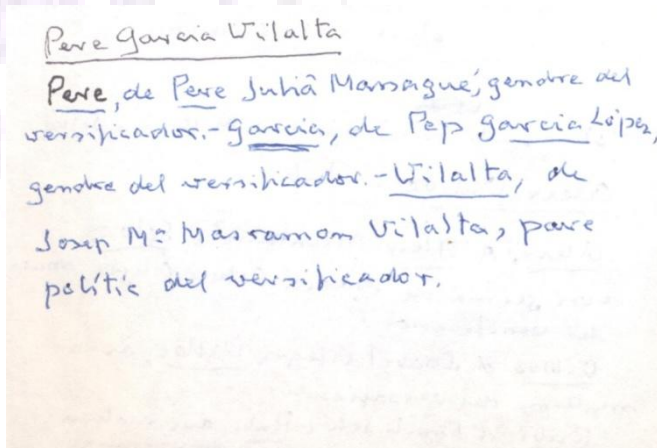 Pere Garcia Vilalta
Pere, de Pere Julià Massagué, gendre del
versificador.- Garcia, de Pep Garcia López,
gendre del versificador.- Vilalta, de
Josep Mª Masramon Vilalta, pare
polític del versificador.